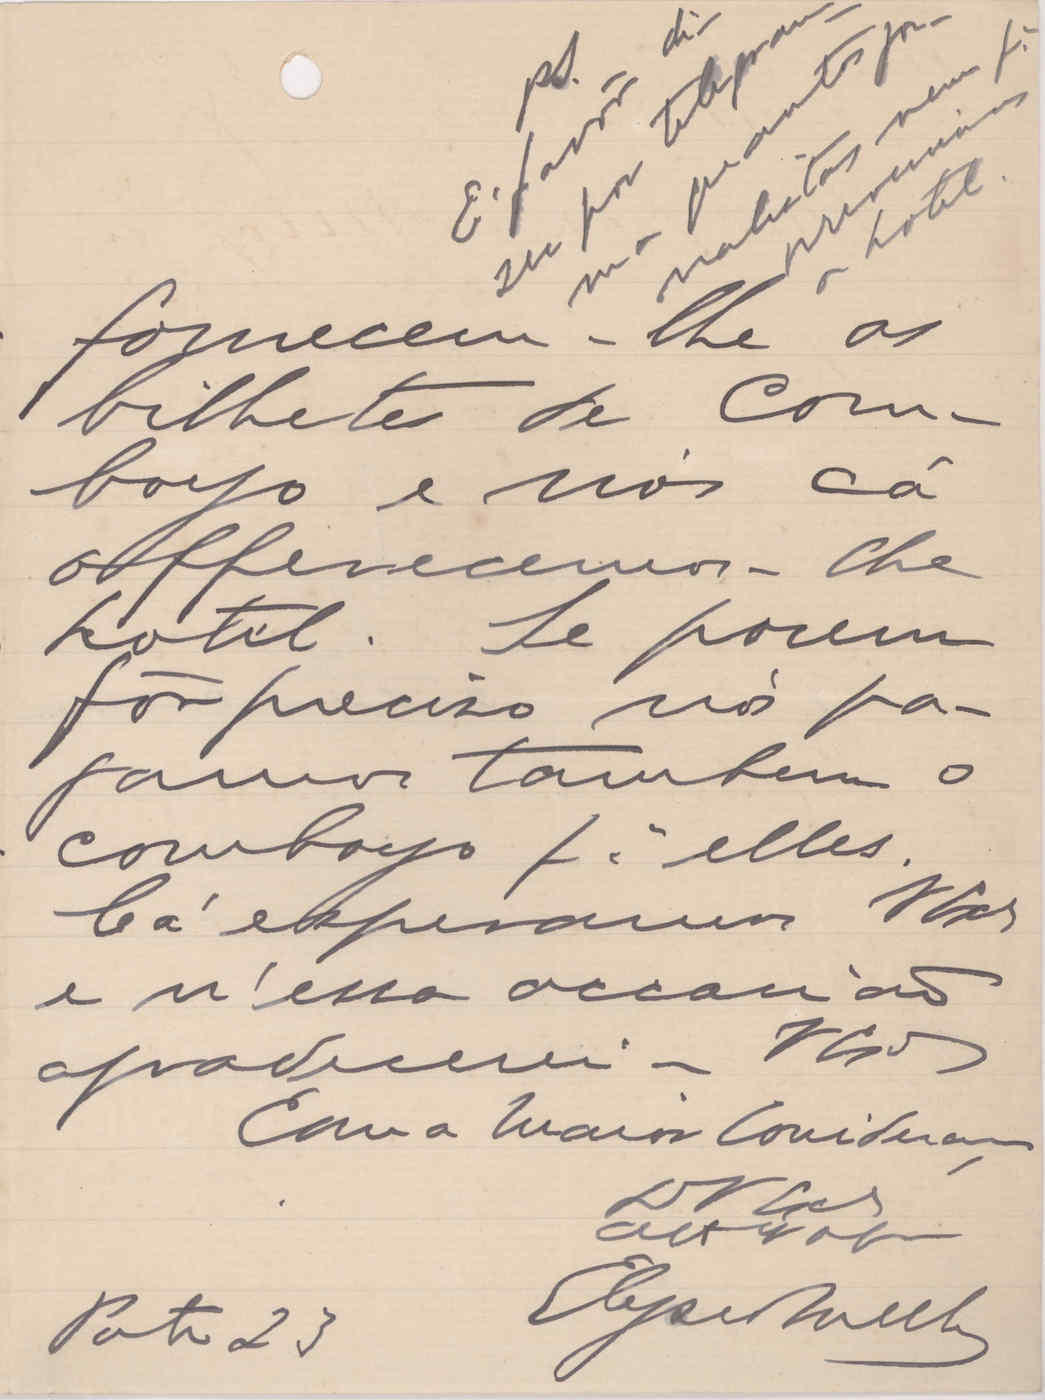 ps.
E. favôr di-
zer por telegram-
ma quantos jor-
nalistas vem pª
prevenirmos
o hotel.
fornecem-lhe os
bilhetes de com-
boyo e nós cá
offerecemos-lhe
hotel. Se porem
fôr preciso nós pa-
gamos tambem o
comboyo pª elles.
Cá esperamos VExas
e n'essa occasião
agradecerei-
Com a maior Consideração
D VExas
Porto 23